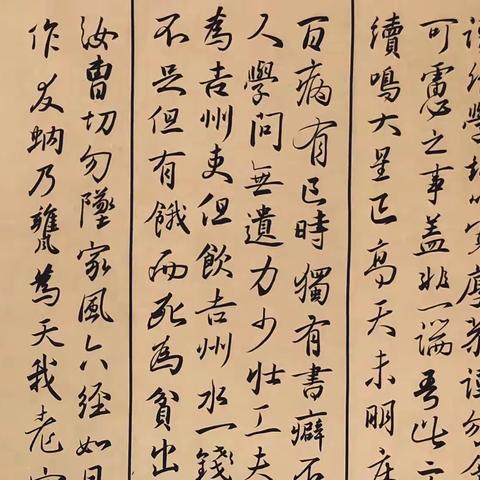 學讀勿
可慮之事蓋非一端吾此
續鳴大星已高天未明床
百病有已時獨有書癖不
人學問無遺力少壯工夫
為吉州吏但飲吉州水一錢
不足但有餓而死為貧出
汝曹切勿墜家風六經如日
作友蚋乃甕為天我老